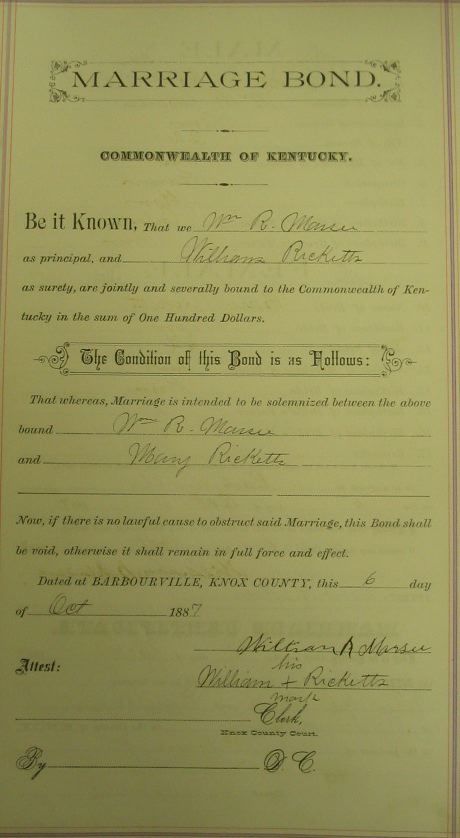 MARRIAGE BOND.
COMMONWEALTH OF KENTUCKY.
Be it Known, That we Wm R. Massee
as principal, and William Ricketts
as surety, are jointly and severally bound to the Commonwealth of Ken-
tucky in the sum of One Hundred Dollars.
The Condition of this Bond is as Follows:
That whereas, Marriage is intended to be solemnized between the above
bound Wm R. Massee
and Mary Ricketts
Now, if there is no lawful cause to obstruct said Marriage, this Bond shall
be void, otherwise it shall remain in full force and effect.
Dated at BARBOURVILLE, KNOX COUNTY, this 6 day
of Oct 1887
William R Massee
his
Attest: William + Ricketts
mark
Clerk,
Knox County Court.
By D. C.